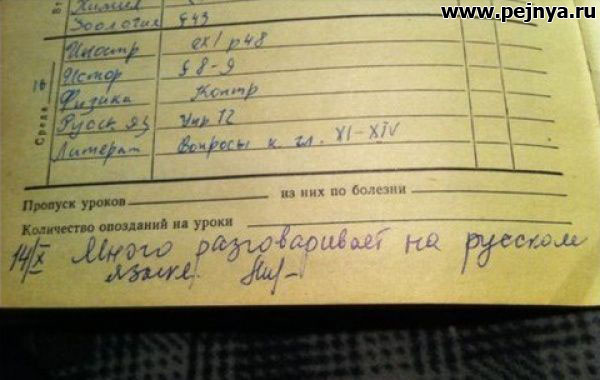 www.pejnya.ru
Вт
Химия
Зоология §43
Иностр ex1 p48
Среда 16
Истор § 8-9
Физика Контр
Русск яз Упр 12
Литерат Вопросы к гл. XI-XIV
Пропуск уроков из них по болезни
Количество опозданий на уроки
14/X Много разговаривает на русском
языке.